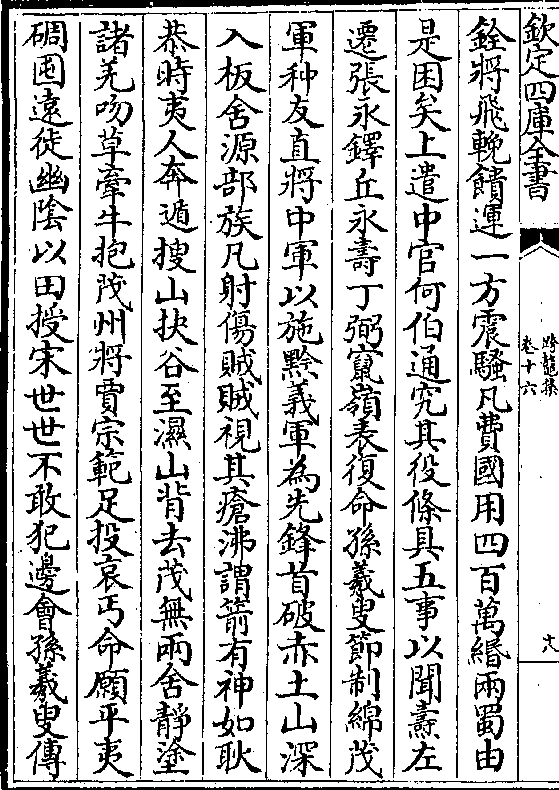 欽定四庫全書
跨鼇集
卷十六
十八
銓將飛輓饋運一方震騷凡費國用四百萬緡兩蜀由
是困矣上遣中官何伯通究其役條具五事以聞燾左
遷張永鐸丘永壽丁弼竄嶺表復命孫羲叟節制綿茂
軍种友直將中軍以施黔義軍為先鋒首破赤土山深
入板舍源部族凡射傷賊賊視其瘡沸謂箭有神如耿
恭時夷人奔遁搜山抉谷至濕山背去茂無兩舍靜塗
諸羌吻草牽牛抱茂州將賈宗範足投哀丐命願平夷
碉囤遠徙幽陰以田授宋世世不敢犯邊會孫羲叟傳